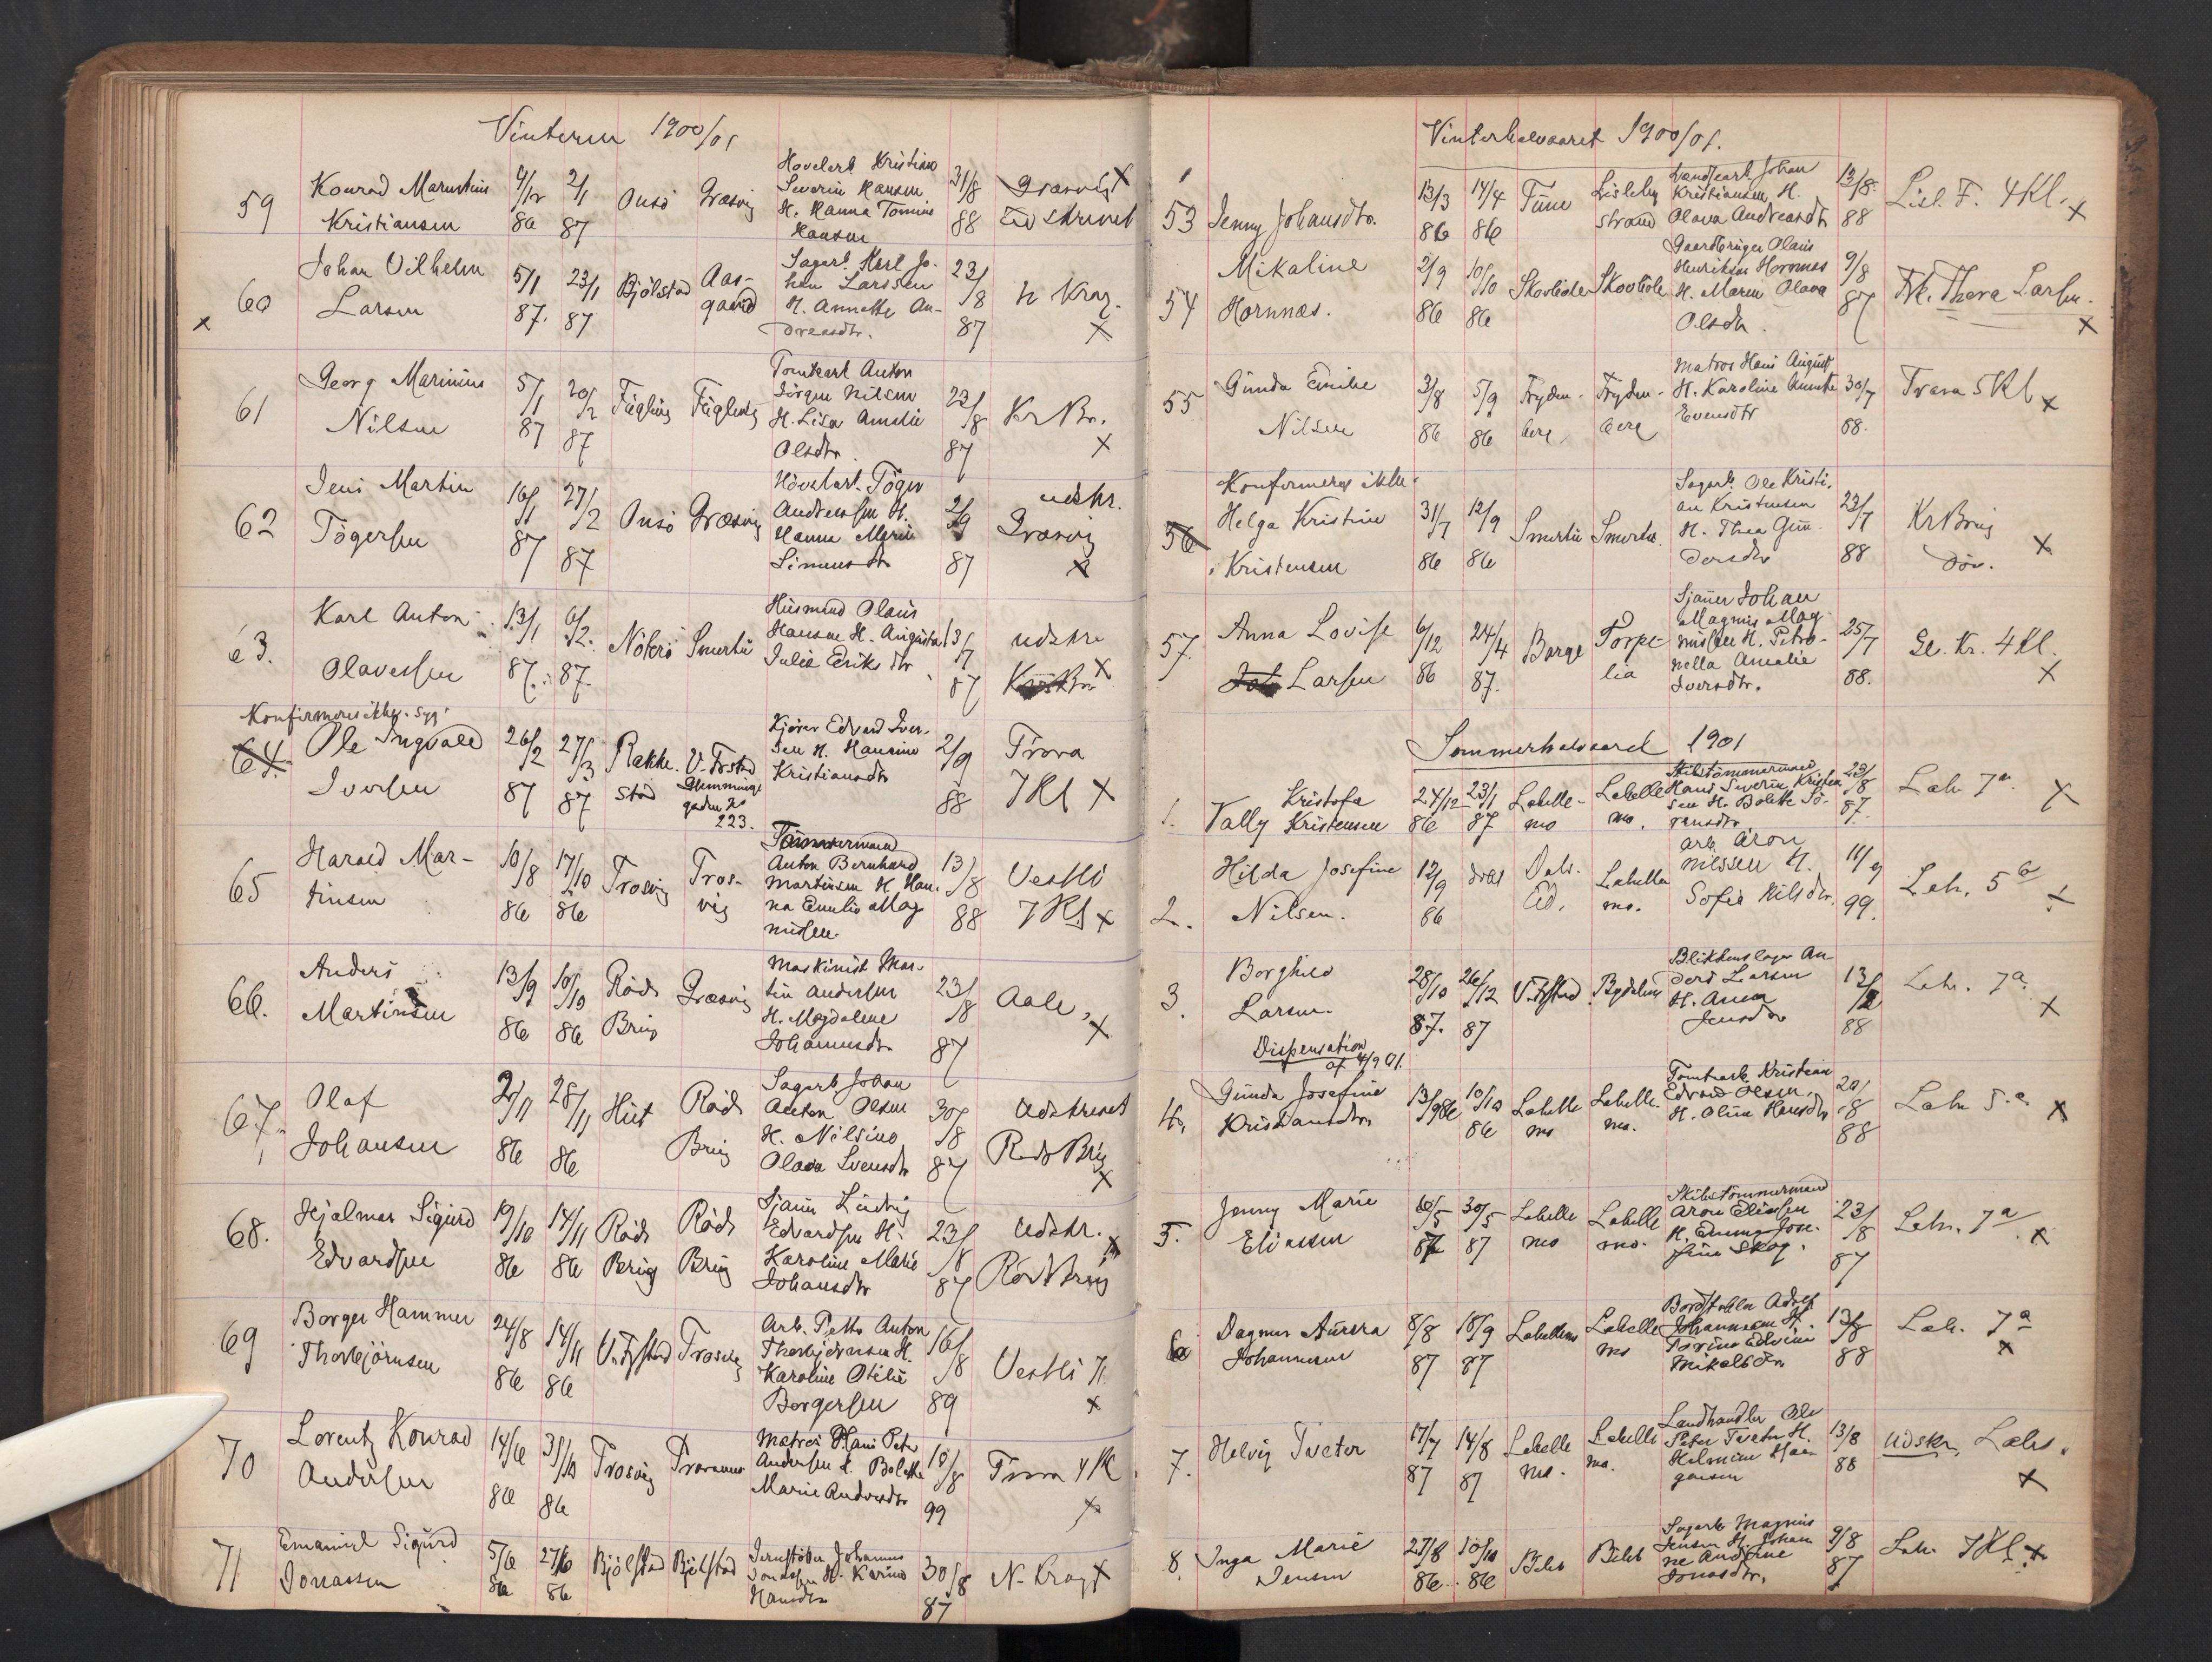 Vinteren 1900/01
59 Konrad Marentius Kristiansen 4/12 86 2/1 87 Onsö Græsvig
Hövelarb. Kristian
Severin Hansen
H. Hanna Tomine
Hansen
31/8 88 Græsvig x
Ud skrevet
60 Johan Vilhelm Larsen 5/1 87. 23/1 87 Bjölstad Aasgaard
Sagarb. Karl Jo-
han Larssen
H. Annette An-
dreasdtr.
23/8 87 N Krag. x
61 Georg Marinius Nilsen 5/1 87 20/2 87 Fuglevig Fuglevig
Tomtearb Anton
Jörgen Nilsen
H. Lisa Amalie
Olsdtr.
23/8 87 Kr Br. x
62 Jens Martin Tögersen 16/1 87 27/2 87 Onsö Græsvig
Hövelarb. Töger
Andreassen H.
Hanna Marie
Simensdtr
2/9 87 udskr.
Græsvig x
63. Karl Anton Olavessen 13/1 87. 6/2. 87. Noterö Smertu
Husmand Olaus
Hansen H. Augusta
Julie Eriksdtr
13/7 87 udskr. x
Konfirmeres ikke. Syg.
64. Ole Ingvald Iversen 26/2 87 27/3 87 Rakkestad V. Frstad
Glemminge
gaden No
223.
Kjörer Edvard Iver-
sen H. Hansine
Kristiansdtr
2/9 88 Trara
7 Kl x
65 Harald Martinsen 10/8 86 17/10 86 Trosvig Trosvig
Tömmermand
Anton Bernhard
Martinsen H. Han-
na Emilie Mag
nussen.
13/8 88 Vestli
7 Kl x
66. Anders Martinsen 13/9 86 10/10 86 Röds Brug Græsvig
Maskinist Mar-
tin Andersen
H. Magdalene
Johannesdtr.
23/8 87 Aale, x
67. Olaf Johansen 2/11 86 28/11 86 Hist Röds Brug
Sagarb Johan
Anton Olsen
H. Nilsine
Olava Svensdtr
30/8 87 Udskrevet
Röds Brug x
68. Hjalmar Sigurd Edvardsen 19/10 86 14/11 86 Röds Brug Röds Brug
Sjauer Ludvig
Edvardsen H.
Karoline Marie
Johansdtr
23/8 87 Udskr. x
Röds brug
69 Borger Hammer Thorbjörnsen 24/8 86 14/11 86 V. Frstad Trosvig
Arb. Petter Anton
Thorbjörnsen H.
Karoline Otilie
Borgersen
16/8 89 Vestli 7. x
70 Lorentz Konrad Andersen 14/6 86 31/10 86 Trosvig
Matros Hans Peter
Andersen H. Bolette
Marie Andersdtr
10/8 99 Trara 4 Kl x
71 Emanuel Sigurd Jonassen 5/6 86 27/6 86 Bjölstad Bjölstad
Jernstöber Johannes
Jonassen H. Karine
Hansdtr
30/8 87 N. Krag x
Vinterhalvaaret 1900/01.
53 Jenny Johansdtr. 13/3 86 14/4 86 Tune Lisleby strand
Landsearb Johan
Kristiansen H.
Olava Andreasdtr
13/8 88 Lisl. F. 4 Kl. x
54 Mikaline Hornnæs. 2/9 86 10/10 86 Skovbole Skovbole
Gaardbruger Olaus
Henriksen Hornnæs
H. Maren Olava
Olsdtr.
9/8 87 Frk. Thora Larsen. x
55 Gunda Emilie Nilsen 3/8 86 5/9 86 Frydenberg, Frydenberg
Matros Hans August
H. Karoline Annette
Evensdtr
30/7 88. Trara 5 Kl x
Konfirmeres ikke.
56 Helga Kristine Kristensen 31/7 86 12/9 86 Smertu Smertu.
Sagarb. Ole Kristi-
an Kristensen
H. Thea Gun-
dersdtr
23/7 88 Kr Brug
döv. x
57. Anna Lovise Larsen 6/12 86 24/4 87. Borge Torpelia
Sjauer Johan
Magnus Mag-
nussen H. Petro-
nella Amalie
Iversdtr.
25/7 88. Gl. Kr. 4 Kl. x
Sommerhalvaaret 1901
1. Kristofa Vally Kristensen 24/12 86 23/1 87 Labellemo Labellemo.
Skibstömmermand
Hans Severin Kristen
sen H. Bolette Sö-
rensdtr
23/8 87. Lah 7a x
2. Hilda Josefine Nilsen. 12/9 86 döbt Dals-Ed. Labellemo.
Arb. Aron
Nilssen H.
Sofie Nilsdtr.
11/9 99. Lah. 5b x
3. Borghild Larsen. 28/10 87. 26/12 87 V. Frstad. Bydalen
Blikkenslager An-
ders Larsen
H. Anna
Jensdtr
13/2 88 Lah. 7a. x
Dispensation
af 4/9 01.
4. Gunda Josefine Kristiansdtr. 13/9 86 10/10 86 Labellemo Labellemo.
Tomtearb Kristian
Edvard Olsen
H. Oline Hansdtr
20/8 88 Lah 5.a x
5. Jenny Marie Eliassen 10/5 87 30/5 87 Labellemo Labellemo.
Skibstömmermand
Aron Eliassen
H. Emma Jose-
fine Skog.
23/8 87 Lah. 7a x
6 Dagmar Aurora Johannesen 8/8 87 18/9 87 Labellemo Labellemo
Bordstabler Adolf
Johannesen H.
Torine Edvine
Mikalsdtr
13/8 88 Lah. 7a x
7. Helvig Tveter 17/7 87 14/8 87 Labellemo. Labellemo.
Landhandler Ole
Peter Tveter H.
Helmine Haa-
gensen
13/8 88 Udskr. Lahs. x
8. Inga Marie Jensen 27/8 86. 10/10 86
Sagarb Magnus
Jensen H. Johan
ne Andrine
Jonasdtr.
9/8 87 Lah 7 Kl x